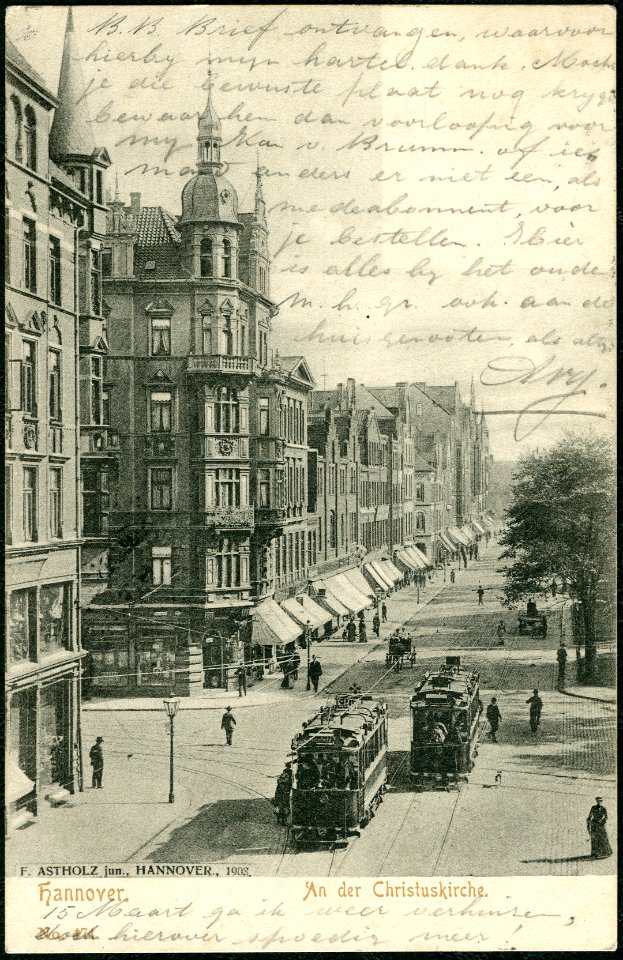 B.B. Brief ontvangen, waarvoor
hierby myn harte. dank. Mocht
je die bewuste plaat nog krygen
bewaar hen dan voorloopig voor
my. Kan v. Brumm. of iem
and anders er niet een, als
mede abonnent, voor
je bestellen. Hier
is alles by het oude
m. h. gr. ook aan de
huisgenooten, als altyd
F. ASTHOLZ jun., HANNOVER., 1903.
Hannover.
An der Christuskirche.
15 Maart ga ik weer verhuizen,
hierover spoedig meer!